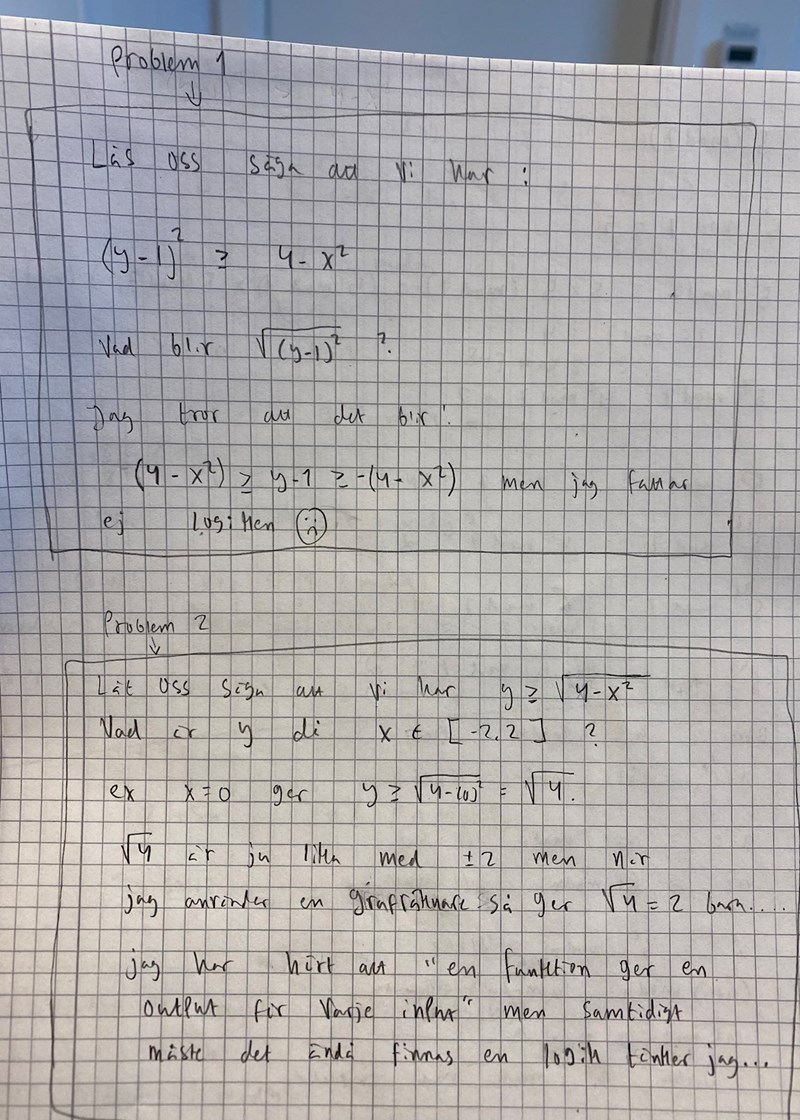 Problem 1
↓
Lås oss säga att vi har :
(y-1)² ≥ 4-x²
Vad blir √(y-1)² ?
Jag tror att det blir:
(4-x²) ≥ y-1 ≥ -(4-x²) men jag fattar
ej logiken ☹
Problem 2
↓
Låt oss säga att vi har y ≥ √4-x²
Vad är y då x ∈ [-2,2] ?
ex x=0 ger y ≥ √4-(0)² = √4.
√4 är ju lika med ±2 men när
jag använder en grafräknare så ger √4 = 2 bara....
jag har hört att "en funktion ger en
output för varje input" men samtidigt
måste det ändå finnas en logik tänker jag...